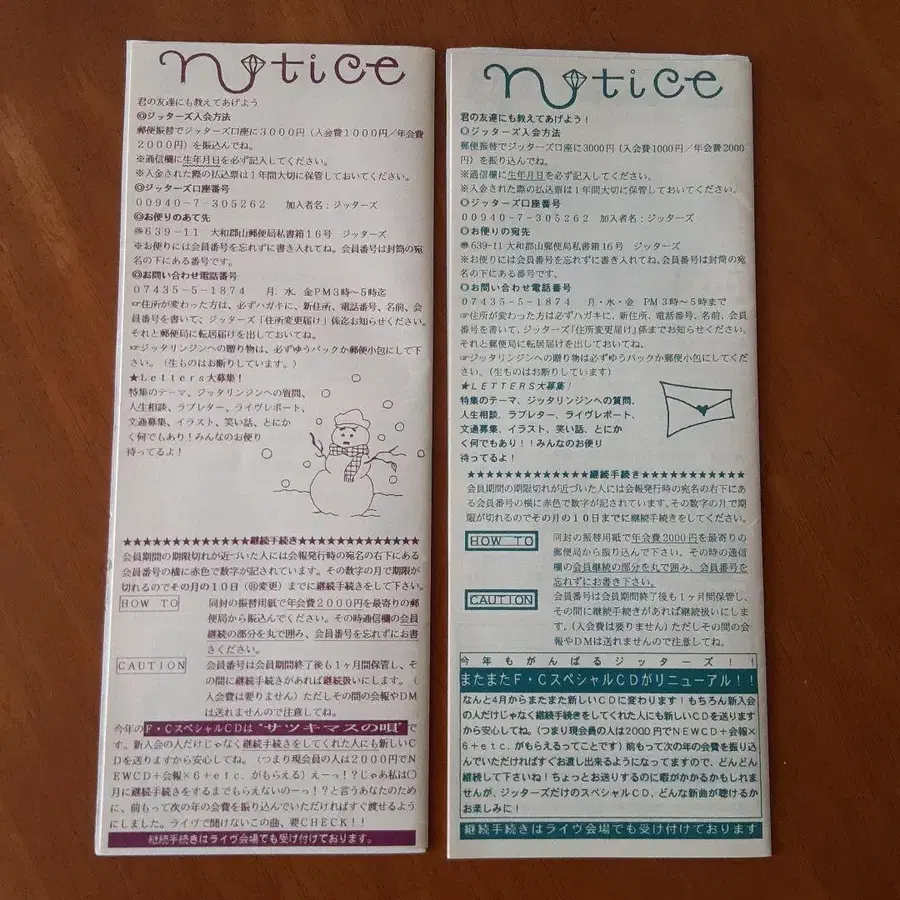 notice
君の友達にも教えてあげよう
◎ジッターズ入会方法
郵便振替でジッターズ口座に3000円（入会費1000円／年会費
2000円）を振込んでね。
※通信欄に生年月日を必ず記入してください。
※入金された際の払込票は1年間大切に保管しておいてください。
◎ジッターズ口座番号
00940-7-305262　加入者名：ジッターズ
◎お便りのあて先
〠639-11　大和郡山郵便局私書箱16号　ジッターズ
※お便りには会員番号を忘れずに書き入れてね。会員番号は封筒の宛
名の下にある番号です。
◎お問い合わせ電話番号
07435-5-1874　月．水．金PM3時〜5時迄
☞住所が変わった方は、必ずハガキに、新住所、電話番号、名前、会
員番号を書いて、ジッターズ「住所変更届け」係迄お知らせください。
それと郵便局に転居届けを出しておいてね。
☞ジッタリンジンへの贈り物は、必ずゆうパックか郵便小包にして下
さい。（生ものはお断りしています。）
★Letters大募集！
特集のテーマ、ジッタリンジンへの質問、
人生相談、ラブレター、ライヴレポート、
文通募集、イラスト、笑い話、とにか
く何でもあり！みんなのお便り
待ってるよ！
★★★★★★★★★★★★継続手続き★★★★★★★★★★★★
会員期間の期限切れが近づいた人には会報発行時の宛名の右下にある
会員番号の横に赤色で数字が記されています。その数字の月で期限が
切れるのでその月の10日（㊟変更）までに継続手続きをして下さい。
HOW TO　同封の振替用紙で年会費2000円を最寄りの郵
便局から振込んでください。その時通信欄の会員
継続の部分を丸で囲み、会員番号を忘れずにお書
きください。
CAUTION　会員番号は会員期間終了後も1ヶ月間保管し、そ
の間に継続手続きがあれば継続扱いにします。（
入会費は要りません）ただしその間の会報やDM
は送れませんので注意してね。
今年のF・CスペシャルCDは“サツキマスの唄”で
す。新入会の人だけじゃなく継続手続きをしてくれた人にも新しいC
Dを送りますから安心してね。（つまり現会員の人は2000円でN
EWCD＋会報×6＋etc．がもらえる）えーっ！？じゃあ私は〇
月に継続手続きをするまでもらえないのーっ！？と言うあなたのため
に、前もって次の年の会費を振り込んでいただければすぐ渡せるよう
にしました。ライヴで聞けないこの曲、要CHECK！！
継続手続きはライヴ会場でも受け付けております。
notice
君の友達にも教えてあげよう！
◎ジッターズ入会方法
郵便振替でジッターズ口座に3000円（入会費1000円／年会費2000
円）を振り込んでね。
※通信欄に生年月日を必ず記入してください。
※入金された際の払込票は1年間大切に保管しておいてください。
◎ジッターズ口座番号
00940-7-305262　加入者名：ジッターズ
◎お便りの宛先
〠639-11 大和郡山郵便局私書箱16号　ジッターズ
※お便りには会員番号を忘れずに書き入れてね。会員番号は封筒の宛
名の下にある番号です。
◎お問い合わせ電話番号
07435-5-1874　月・水・金　PM3時〜5時まで
☞住所が変わった方は必ずハガキに、新住所、電話番号、名前、会員
番号を書いて、ジッターズ『住所変更届け』係までお知らせください。
それと郵便局に転居届けを出しておいてね。
☞ジッタリンジンへの贈り物は必ずゆうパックか郵便小包にしてくだ
さい。（生ものはお断りしています）
★LETTERS大募集！
特集のテーマ、ジッタリンジンへの質問、
人生相談、ラブレター、ライヴレポート、
文通募集、イラスト、笑い話、とにか
く何でもあり！！みんなのお便り
待ってるよ！
★★★★★★★★★★★★継続手続き★★★★★★★★★★★
会員期間の期限切れが近づいた人には会報発行時の宛名の右下にあ
る会員番号の横に赤色で数字が記されています。その数字の月で期
限が切れるのでその月の10日までに継続手続きをしてください。
HOW TO　同封の振替用紙で年会費2000円を最寄りの
郵便局から振込んで下さい。その時の通信
欄の会員継続の部分を丸で囲み、会員番号を
忘れずにお書き下さい。
CAUTION　会員番号は会員期間終了後も1ヶ月間保管し、
その間に継続手続きがあれば継続扱いにしま
す。（入会費は要りません）ただしその間の会
報やDMは送れませんので注意してね。
今年もがんばるジッターズ！！
またまたF・CスペシャルCDがリニューアル！！
なんと4月からまたまた新しいCDに変わります！もちろん新入会
の人だけじゃなく継続手続きをしてくれた人にも新しいCDを送ります
から安心してね。（つまり現会員の人は2000円でNEWCD＋会報×
6＋etc．がもらえるってことです）前もって次の年の会費を振り込
んでいただければすぐお渡し出来るようになってますので、どんどん
継続して下さいね！ちょっとお送りするのに暇がかかるかもしれま
せんが、ジッターズだけのスペシャルCD、どんな新曲が聴けるか
お楽しみに！
継続手続きはライヴ会場でも受け付けております